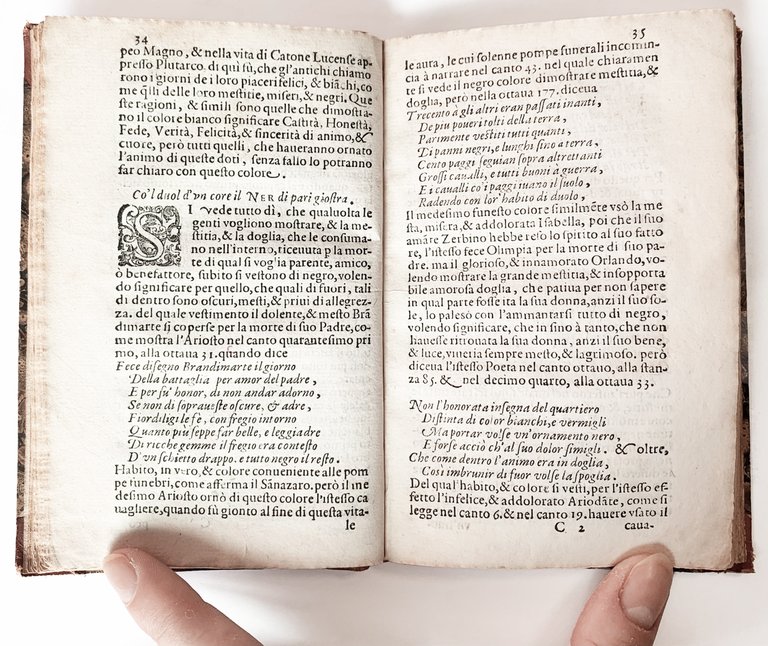 34
peo Magno, & nella vita di Catone Lucense ap-
presso Plutarco. di quì sù, che gl'antichi chiamo
rono i giorni de i loro piaceri felici, & biāchi, co
me q̄lli delle loro mestitie, miseri, & negri. Que
ste ragioni, & simili sono quelle che dimostra-
no il colore bianco significare Castità, Honestà,
Fede, Verità, Felicità, & sincerità di animo, &
cuore, però tutti quelli, che haueranno ornato
l'animo di queste doti, senza fallo lo potranno
far chiaro con questo colore.
Co'l duol d'vn core il NER di pari giostra.
SI vede tutto dì, che qualuolta le
genti vogliono mostrare, & la me-
stitia, & la doglia, che le consuma-
no nell'interno, riceuuta p la mor-
te di qual si vog'ia parente, amico,
ò benefattore, subito si vestono di negro, volen-
do significare per quello, che quali di fuori, tali
di dentro sono oscuri, mesti, & priui di allegrez-
za. del quale vestimento il dolente, & mesto Brā
dimarte si coperse per la morte di suo Padre, co-
me mostra l'Ariosto nel canto quarantesimo pri
mo, alla ottaua 31. quando dice
Fece disegno Brandimarte il giorno
Della battaglia per amor del padre,
E per su' honor, di non andar adorno,
Se non di sopraueste oscure, & adre,
Fiordiligi le fè, con fregio intorno
Quanto più seppe far belle, e leggiadre
Di ricche gemme il fregio era contesto
D'vn schietto drappo, e tutto negro il resto.
Habito, in vero, & colore conueniente alle pom
pe funebri, come afferma il Sānazaro. però il me
desimo Ariosto ornò di questo colore l'istesso ca
uagliere, quando fù gionto al fine di questa vita-
le
35
le aura, le cui solenne pompe funerali incomin-
cia à narrare nel canto 43. nel quale chiaramen
te si vede il negro colore dimostrare mestitia, &
doglia, però nella ottaua 177. diceua
Trecento à gli altri eran passati inanti,
De piu poueri tolti della terra,
Parimente vestiti tutti quanti,
Di panni negri, e lunghi sino a terra,
Cento paggi seguian sopra altrettanti
Grossi caualli, e tutti buoni à guerra,
E i caualli co'i paggi iuano il suolo,
Radendo con lor' habito di duolo,
Il medesimo funesto colore similmēte vsò la me
sta, misera, & addolorata Isabella, poi che il suo
amāte Zerbino hebbe reso lo spirito al suo fatto
re, l'istesso fece Olimpia per la morte di suo pa-
dre. ma il glorioso, & innamorato Orlando, vo-
lendo mostrare la grande mestitia, & insopporta
bile amorosa doglia, che patiua per non sapere
in qual parte fosse ita la sua donna, anzi il suo so-
le, lo palesò con l'ammantarsi tutto di negro,
volendo significare, che in sino à tanto, che non
hauesse ritrouata la sua donna, anzi il suo bene,
& luce, viueria sempre mesto, & lagrimoso. però
diceua l'istesso Poeta nel canto ottauo, alla stan-
za 85. & nel decimo quarto, alla ottaua 33.
Non l'honorata insegna del quartiero
Distinta di color bianchi, e vermigli
Ma portar volse vn'ornamento nero,
E forse acciò ch'al suo dolor simigli. & oltre,
Che come dentro l'animo era in doglia,
Così imbrunir di fuor volse la spoglia.
Del qual habito, & colore si vestì, per l'istesso ef-
fetto l'infelice, & addolorato Ariodāte, come si
legge nel canto 6. & nel canto 19. hauere vsato il
C 2 caua-